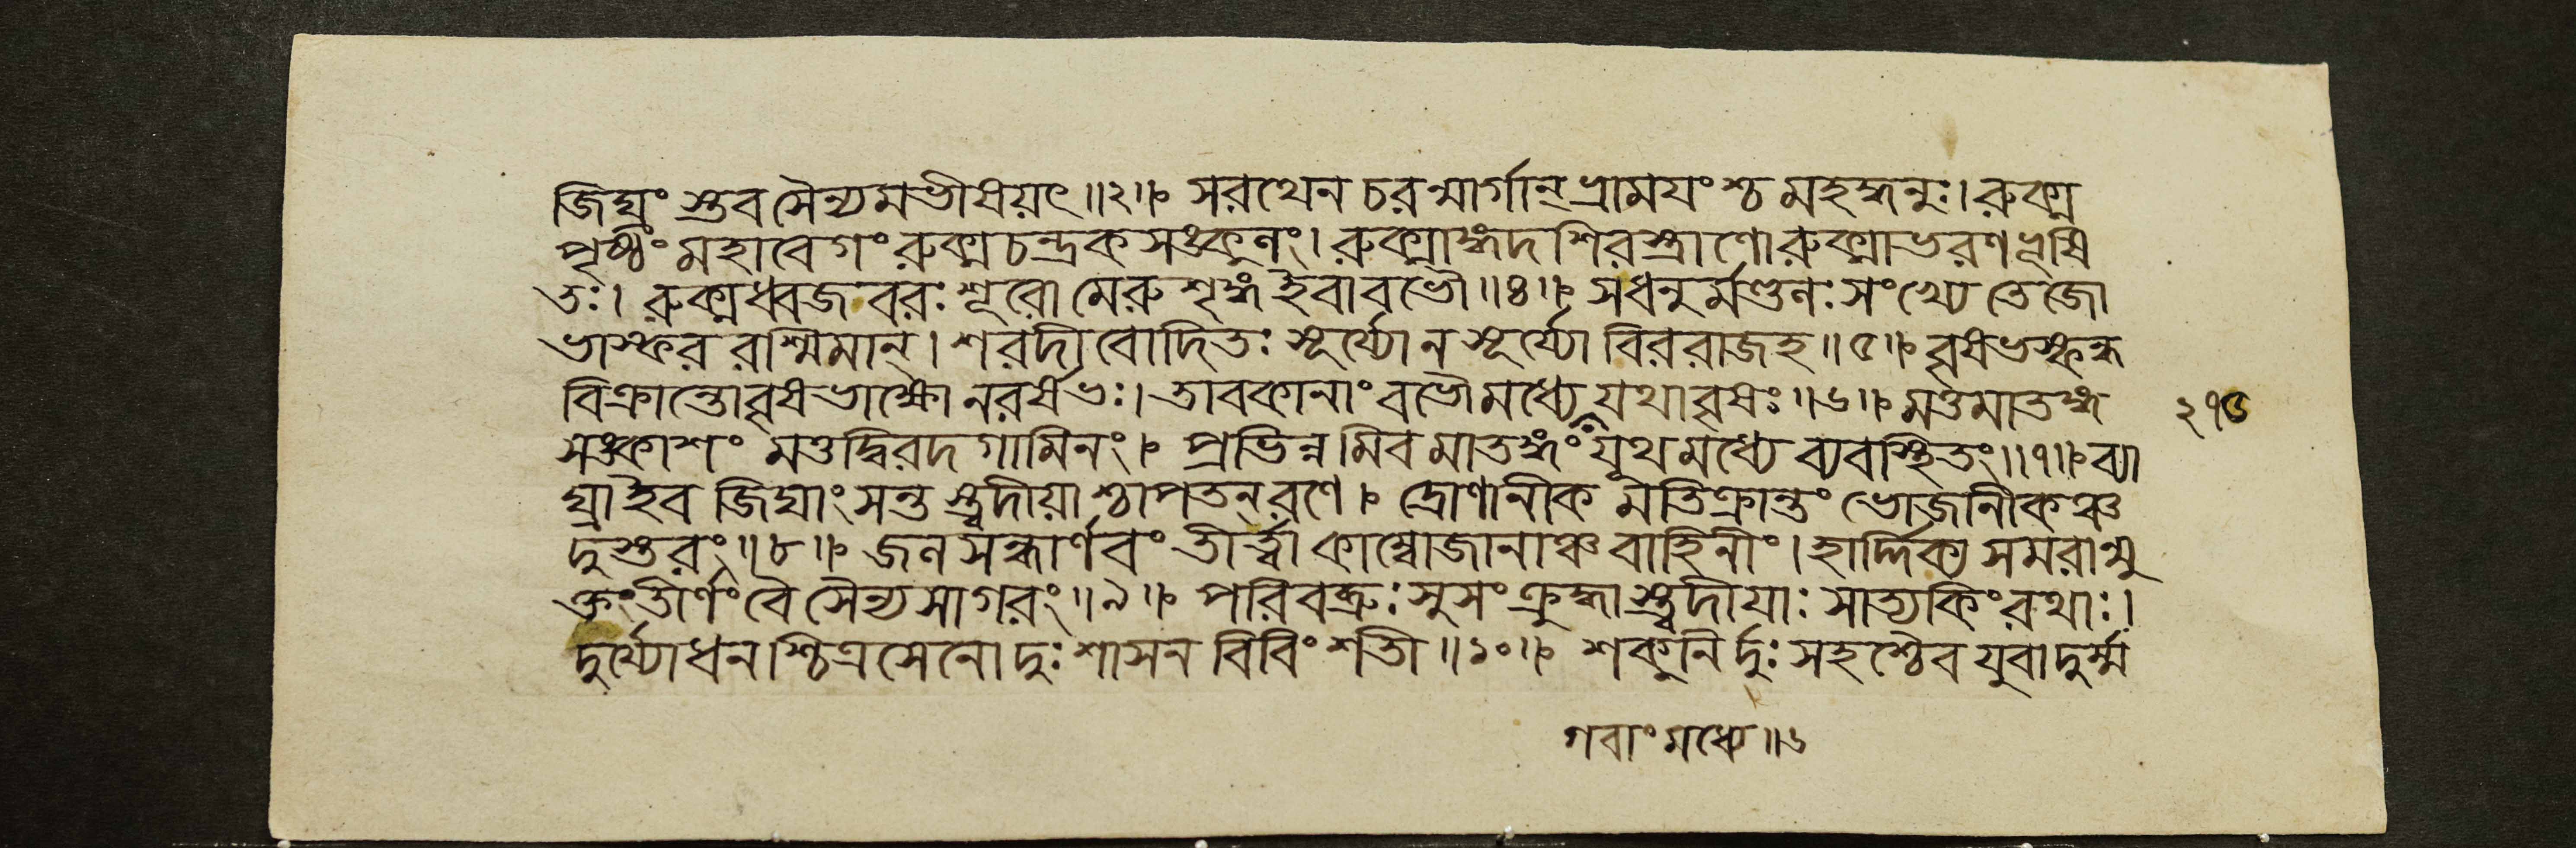 জিঘ্রং স্তব সৈন্যমভীষয়ৎ॥২॥ সরথেন চরন্মার্গান্ ভ্রাময়ংশ্চ মহদ্ধনুঃ। রুক্ম
পৃষ্ঠং মহাবেগং রুক্মচন্দ্রকসঙ্কুলং। রুক্মাঙ্গদশিরস্ত্রাণো রুক্মাভরণভূষি
তঃ। রুক্মধ্বজবরঃ শূরো মেরুশৃঙ্গ ইবাবভৌ॥৪॥ সধনুর্মণ্ডলঃ সংখ্যে তেজো
ভাস্কররশ্মিমান্। শরদীবোদিতঃ সূর্য্যো নৃসূর্য্যো বিররাজহ॥৫॥ বৃষভস্কন্ধ
বিক্রান্তো বৃষভাক্ষো নরর্ষভঃ। তাবকানাং বভৌ মধ্যে যথা বৃষঃ॥৬॥ মত্তমাতঙ্গ
সঙ্কাশং মত্তদ্বিরদগামিনং॥ প্রভিন্নমিব মাতঙ্গং যূথমধ্যে ব্যবস্থিতং॥৭॥ ব্যা
ঘ্রাইব জিঘাংসন্তস্ত্বদীয়াশ্চাপতন্ রণে॥ দ্রোণানীকমতিক্রান্তং ভোজানীকঞ্চ
দুস্তরং॥৮॥ জলসন্ধার্ণবং তীর্ত্ত্বা কাম্বোজানাঞ্চ বাহিনীং। হার্দ্দিক্য সমরান্মু
ক্তং তীর্ণং বৈ সৈন্যসাগরং॥৯॥ পরিবব্রুঃ সুসংক্রুদ্ধাস্ত্বদীয়াঃ সাত্যকিং রথাঃ।
দুর্য্যোধনশ্চিত্রসেনো দুঃশাসন বিবিংশতী॥১০॥ শকুনির্দুঃসহশ্চৈব যুবা দুর্ম্ম
২৭৫
গবাংমধ্যে॥৬